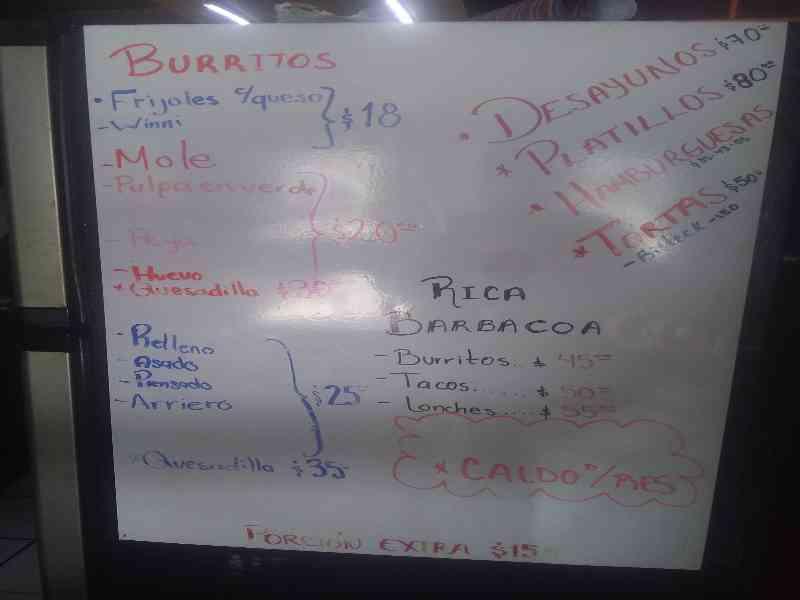 BURRITOS
• Frijoles c/queso
- Winni
$18
- Mole
- Pulpa en verde
- Papa
- Huevo
$20.00
* Quesadilla $30
- Relleno
- Asado
- Prensado
- Arriero
$25
* Quesadilla $35
• DESAYUNOS $70.00
* PLATILLOS $80.00
* HAMBURGUESAS
* TORTAS $50.00
RICA
BARBACOA
- Burritos.. $ 45.00
- Tacos...... $ 50.00
- Lonches.... $ 55.00
* CALDO D/RES
PORCIÓN EXTRA $15